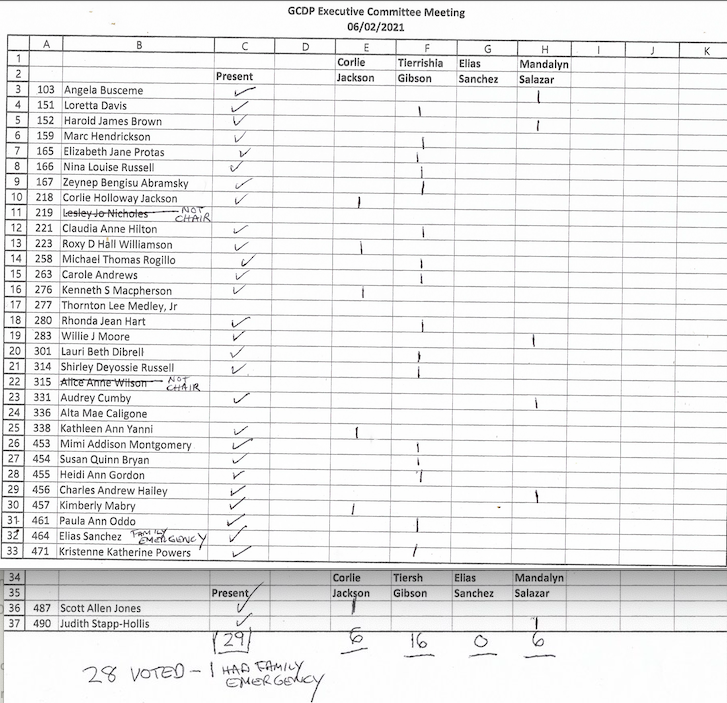 GCDP Executive Committee Meeting
06/02/2021
A B C D E F G H I J K
1 Corlie Tierrishia Elias Mandalyn
2 Present Jackson Gibson Sanchez Salazar
3 103 Angela Busceme ✓ |
4 151 Loretta Davis ✓ |
5 152 Harold James Brown ✓ |
6 159 Marc Hendrickson ✓ |
7 165 Elizabeth Jane Protas ✓ |
8 166 Nina Louise Russell ✓ |
9 167 Zeynep Bengisu Abramsky ✓ |
10 218 Corlie Holloway Jackson ✓ |
11 219 Lesley Jo Nicholes NOT CHAIR
12 221 Claudia Anne Hilton ✓ |
13 223 Roxy D Hall Williamson ✓ |
14 258 Michael Thomas Rogillo ✓ |
15 263 Carole Andrews ✓ |
16 276 Kenneth S Macpherson ✓ |
17 277 Thornton Lee Medley, Jr
18 280 Rhonda Jean Hart ✓ |
19 283 Willie J Moore ✓ |
20 301 Lauri Beth Dibrell ✓ |
21 314 Shirley Deyossie Russell ✓ |
22 315 Alice Anne Wilson NOT CHAIR
23 331 Audrey Cumby ✓ |
24 336 Alta Mae Caligone
25 338 Kathleen Ann Yanni ✓ |
26 453 Mimi Addison Montgomery ✓ |
27 454 Susan Quinn Bryan ✓ |
28 455 Heidi Ann Gordon ✓ |
29 456 Charles Andrew Hailey ✓ |
30 457 Kimberly Mabry ✓ |
31 461 Paula Ann Oddo ✓ |
32 464 Elias Sanchez FAMILY EMERGENCY ✓
33 471 Kristenne Katherine Powers ✓ |
34 Corlie Tiersh Elias Mandalyn
35 Present Jackson Gibson Sanchez Salazar
36 487 Scott Allen Jones ✓ |
37 490 Judith Stapp-Hollis ✓ |
29 6 16 0 6
28 VOTED - 1 HAD FAMILY
EMERGENCY